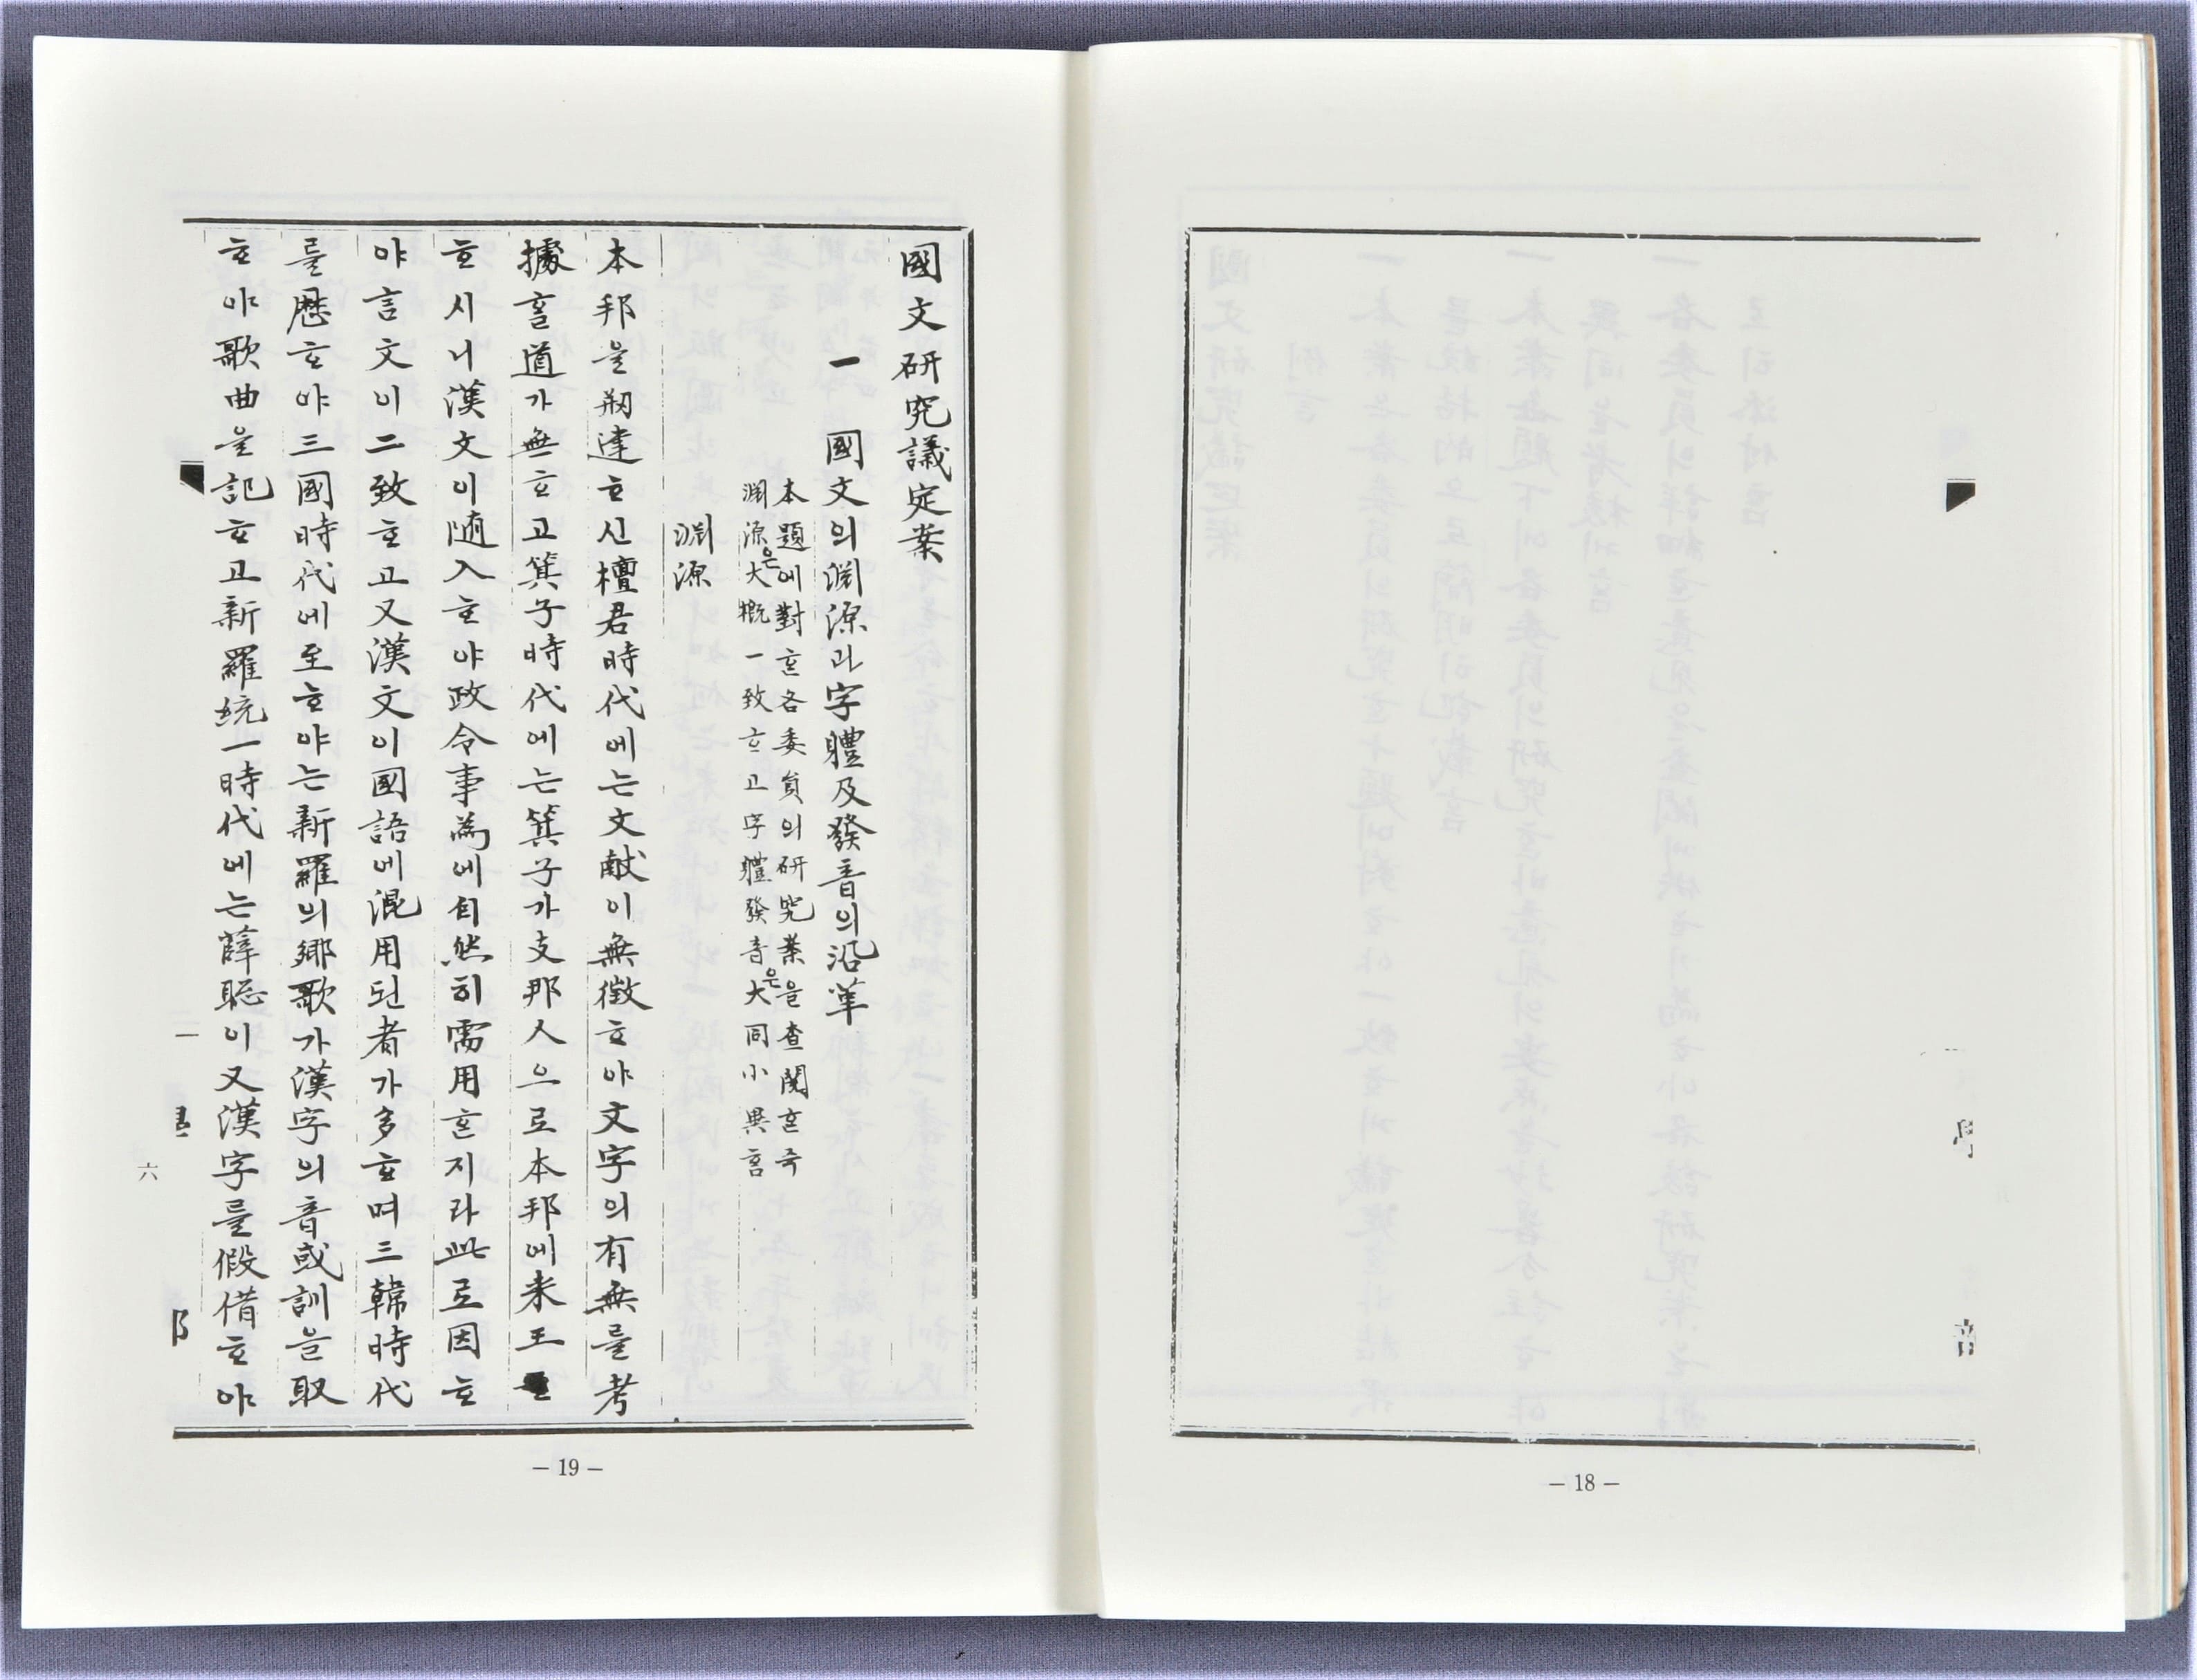 – 18 –
國文硏究議定案
一 國文의淵源과字體及發音의沿革
本題에對ᄒᆞᆫ各委員의硏究案을査閱ᄒᆞᆫ즉
淵源은大槪一致ᄒᆞ고字體發音은大同小異ᄒᆞᆷ
淵源
本邦을刱建ᄒᆞ신檀君時代에는文献이無徵ᄒᆞ야文字의有無를考
據ᄒᆞᆯ道가無ᄒᆞ고箕子時代에는箕子가支那人으로本邦에来王
ᄒᆞ시니漢文이随入ᄒᆞ야政令事爲에自然히需用ᄒᆞᆫ지라此로因ᄒᆞ
야言文이二致ᄒᆞ고又漢文이國語에混用된者가多ᄒᆞ며三韓時代
를歷ᄒᆞ야三國時代에至ᄒᆞ야는新羅의鄕歌가漢字의音或訓을取
ᄒᆞ야歌曲을記ᄒᆞ고新羅統一時代에는薛聰이又漢字를假借ᄒᆞ야
一
六
– 19 –